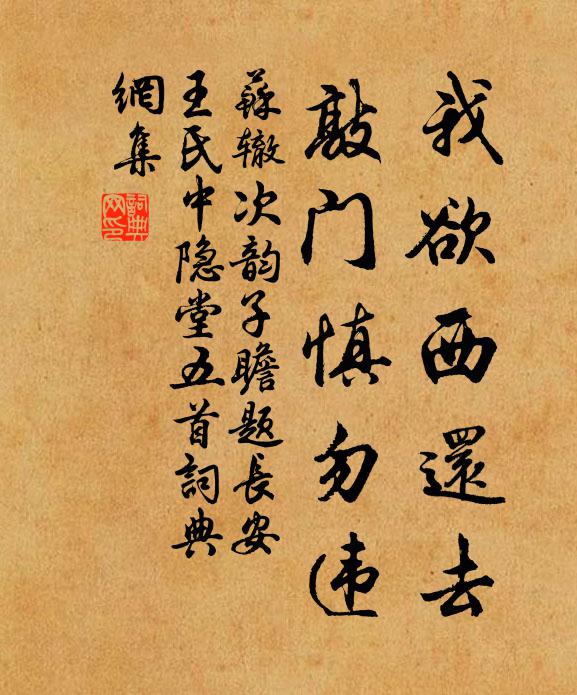 我欲西還去
敲门慎勿违
蘇辙次韵子瞻题長安
王氏中隐堂五首詞典
網集
詞典
网印